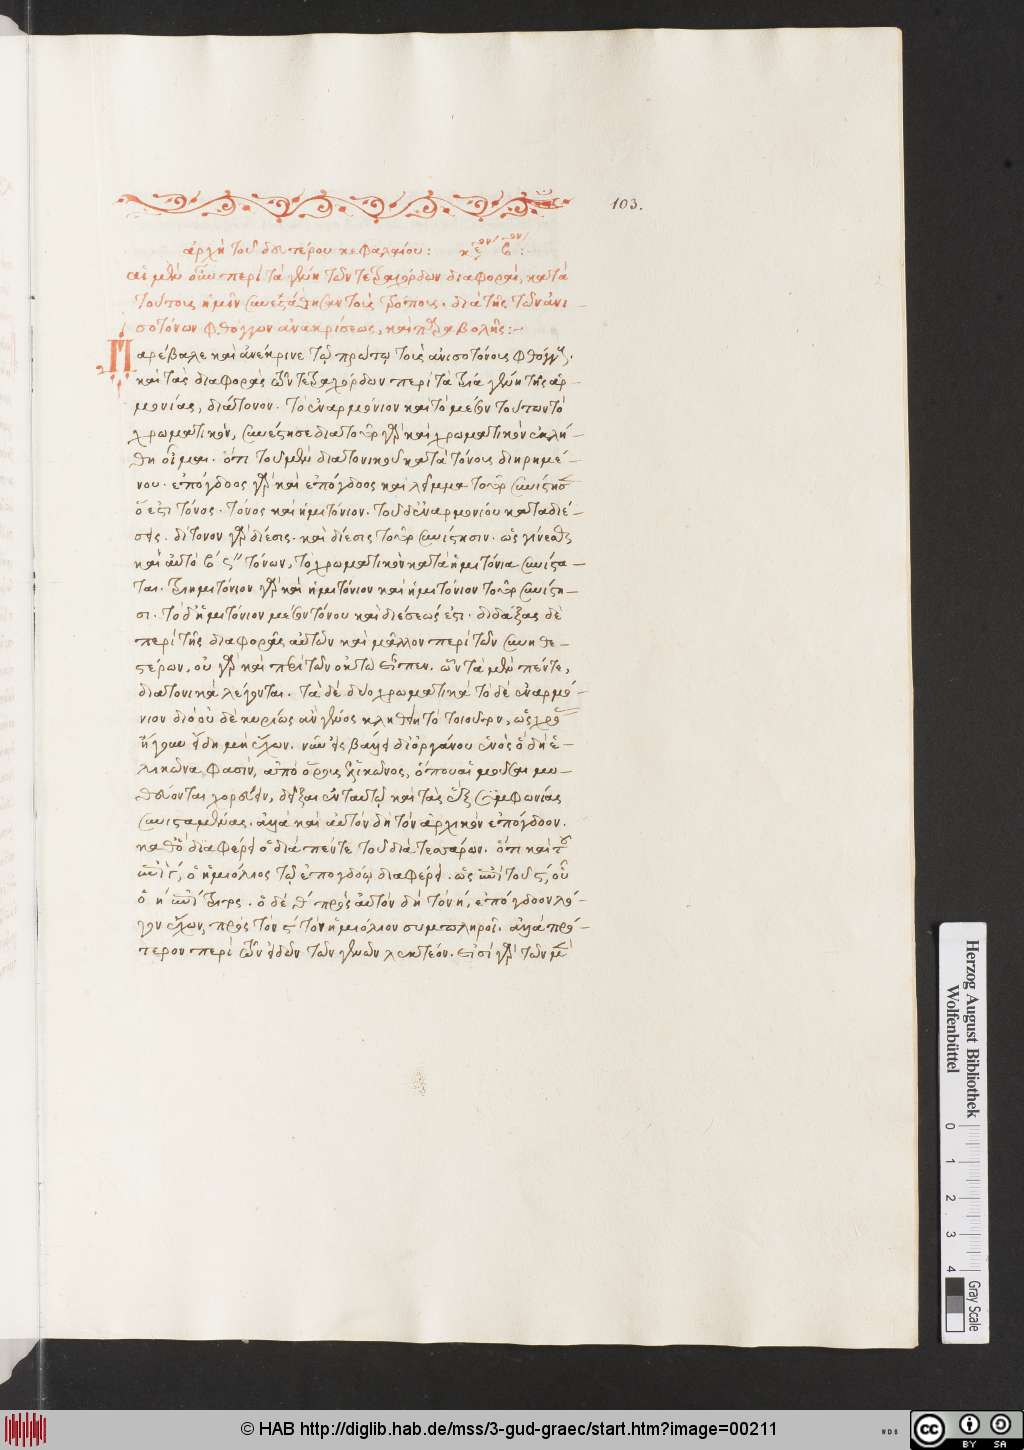 103.
ἀρχὴ τοῦ δευτέρου κεφαλαίου: κεον βον:
αἱ μὲν οὖν περὶ τὰ γένη τῶν τετραχόρδων διαφοραί, κατὰ
τούτοις ἡμῖν συνεξεδόθησαν τοῖς τρόποις. διὰ τῆς τῶν ἀνι-
σοτόνων φθόγγων ἀνακρίσεως, καὶ παραβολῆς:
Παρέβαλε καὶ ἀνέκρινε τῷ πρώτῳ τοὺς ἀνισοτόνους φθόγγους.
καὶ τὰς διαφορὰς τῶν τετραχόρδων περὶ τὰ τρία γένη τῆς ἁρ-
μονίας, διάτονον. τὸ ἐναρμόνιον καὶ τὸ μέσον τούτων τὸ
χρωματικόν, συνέστησε διατοῦτο γὰρ καὶ χρωματικὸν ἐκλή-
θη οἶμαι. ὅτι τοῦ μὲν διατονικοῦ κατὰ τόνους διῃρημέ-
νου. ἐπόγδοος γὰρ καὶ ἐπόγδοος καὶ λεῖμμα τοῦτο συνίστησιν
ὅ ἐστι τόνος. τόνος καὶ ἡμιτόνιον. τοῦ δ' ἐναρμονίου κατὰ διέ-
σεις. δίτονον γὰρ δίεσις. καὶ δίεσις τοῦτο συνίστησιν. ὡς γίνεσθαι
καὶ αὐτὸ β ς'' τόνων, τὸ χρωματικὸν κατὰ ἡμιτόνια συνίστα-
ται. τριημιτόνιον γὰρ καὶ ἡμιτόνιον καὶ ἡμιτόνιον τοῦτο συνίστη-
σι. τὸ δ' ἡμιτόνιον μέσον τόνου καὶ διέσεώς ἐστι. διδάξας δὲ
περὶ τῆς διαφορᾶς αὐτῶν καὶ μᾶλλον περὶ τῶν συνηθε-
στέρων, οὐ γὰρ καὶ περὶ τῶν ὀκτὼ εἶπεν. ὧν τὰ μὲν πέντε,
διατονικὰ λέγονται. τὰ δὲ δύο χρωματικὰ τὸ δὲ ἐναρμό-
νιον διὸ οὐδὲ κυρίως ἂν γένος κληθείη τὸ τοιοῦτον, ὡς χρό
ἤγουν εἴδη μὴ ἔχων. νῦν εἰσβαίνει δι' ὀργάνου ἑνὸς ὃ δὴ ἑ-
λικῶνα φασίν, ἀπὸ ὄρους ἑλικῶνος, ὅπου αἱ μοῦσαι μυ-
θεύονται χορεύειν, δεῖξαι ἐν ταυτῷ καὶ τὰς ἓξ συμφωνίας
συνισταμένας. ἀλλὰ καὶ αὐτὸν δὴ τὸν ἀρχικὸν ἐπόγδοον.
καθὸ διαφέρει ὁ διὰ πέντε τοῦ διὰ τεσσάρων. ὅτι καὶ τοῦ
ἐπὶ γ, ὁ ἡμιόλιος τῷ ἐπογδόῳ διαφέρει. ὡς ἐπὶ τοῦ ς, οὗ
ὁ η ἐπίτριτος. ὁ δὲ θ πρὸς αὐτὸν δὴ τὸν η, ἐπόγδοον λό-
γον ἔχων, πρὸς τὸν ς τὸν ἡμιόλιον συμπληροῖ. ἀλλὰ πρό-
τερον περὶ τῶν εἰδῶν τῶν γενῶν λεκτέον. εἰσὶ γὰρ τῶν μὲν
Herzog August Bibliothek
Wolfenbüttel
0 1 2 3 4
Gray Scale
© HAB http://diglib.hab.de/mss/3-gud-graec/start.htm?image=00211
WDB
cc BY SA